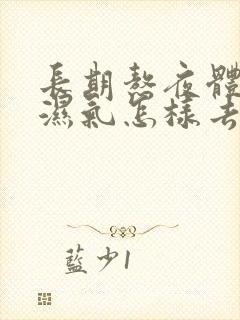 長期熬夜體
濕氣怎樣去
藍少1